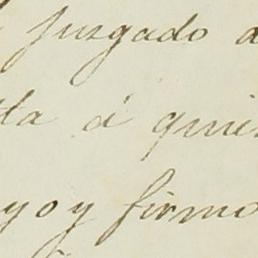 juzgado d
lla á quie
yo y firmo